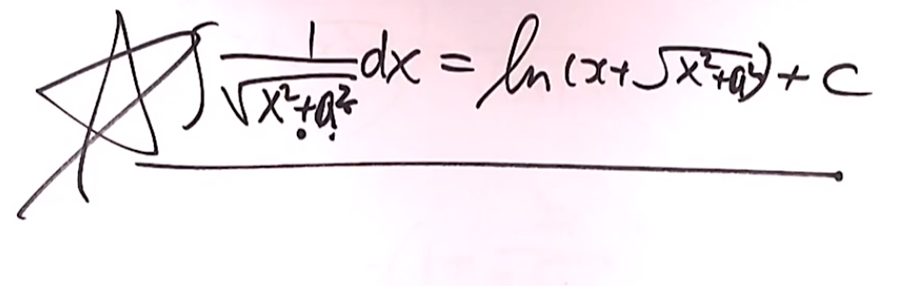 ∫ 1/√(x²+a²) dx = ln(x+√(x²+a²)) + c